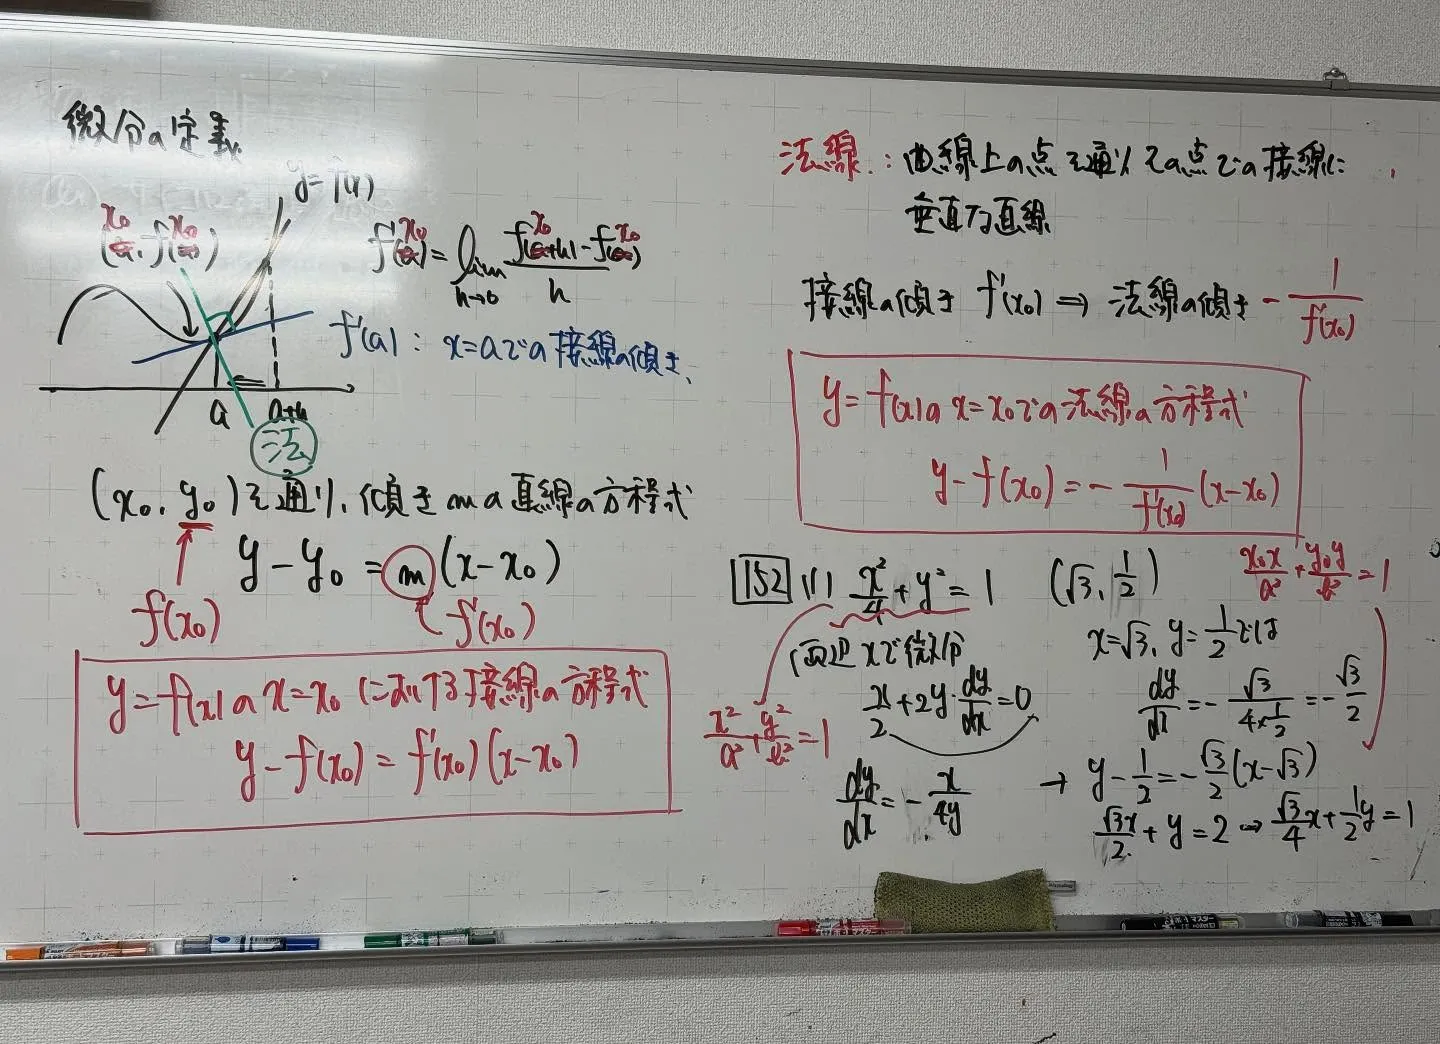 微分の定義
y=f(x)
(x₀, f(x₀))
f'(x₀)=lim h→0 (f(x₀+h)-f(x₀))/h
f'(a): x=aでの接線の傾き、
a a+h
法
(x₀, y₀)を通り、傾きmの直線の方程式
y-y₀=m(x-x₀)
f(x₀) f'(x₀)
y=f(x)のx=x₀における接線の方程式
y-f(x₀)=f'(x₀)(x-x₀)
法線:曲線上の点を通りその点での接線に
垂直な直線
接線の傾き f'(x₀) ⇒ 法線の傾き -1/f'(x₀)
y=f(x)のx=x₀での法線の方程式
y-f(x₀)=-1/f'(x₀)(x-x₀)
152 (1) x²/4+y²=1 (√3, 1/2)
両辺xで微分
x/2+2y·dy/dx=0
x²/a²+y²/b²=1
dy/dx=-x/4y
x₀x/a²+y₀y/b²=1
x=√3, y=1/2では
dy/dx=-√3/(4×1/2)=-√3/2
→ y-1/2=-√3/2(x-√3)
√3x/2+y=2 ⇔ √3/4x+1/2y=1